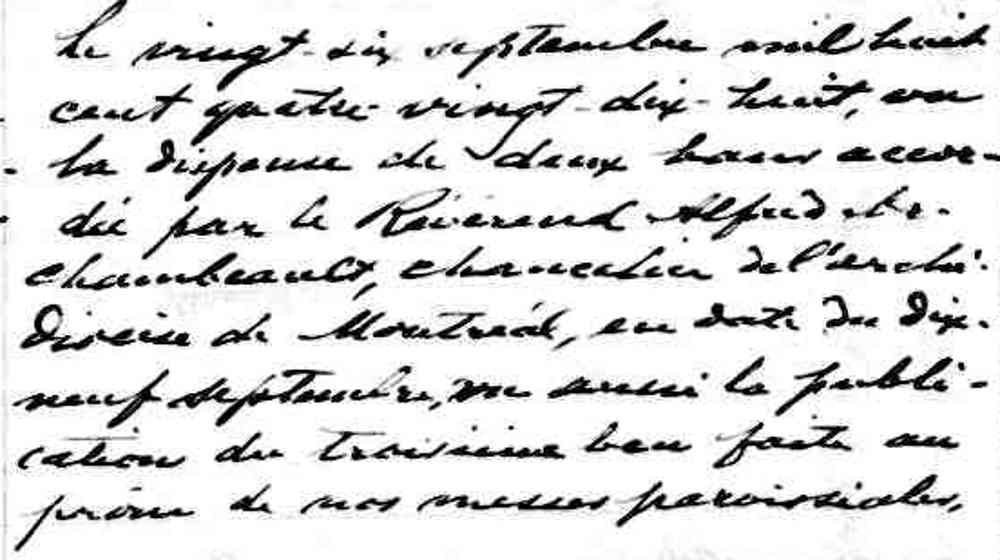 Le vingt-six septembre mil huit
cent quatre-vingt-dix-huit, vu
la dispense de deux bans accor-
dée par le Révérend Alfred Ar-
chambeault, chancelier de l'archi-
diocèse de Montréal, en date du dix-
neuf septembre, vu aussi la publi-
cation du troisième ban faite au
prône de nos messes paroissiales,